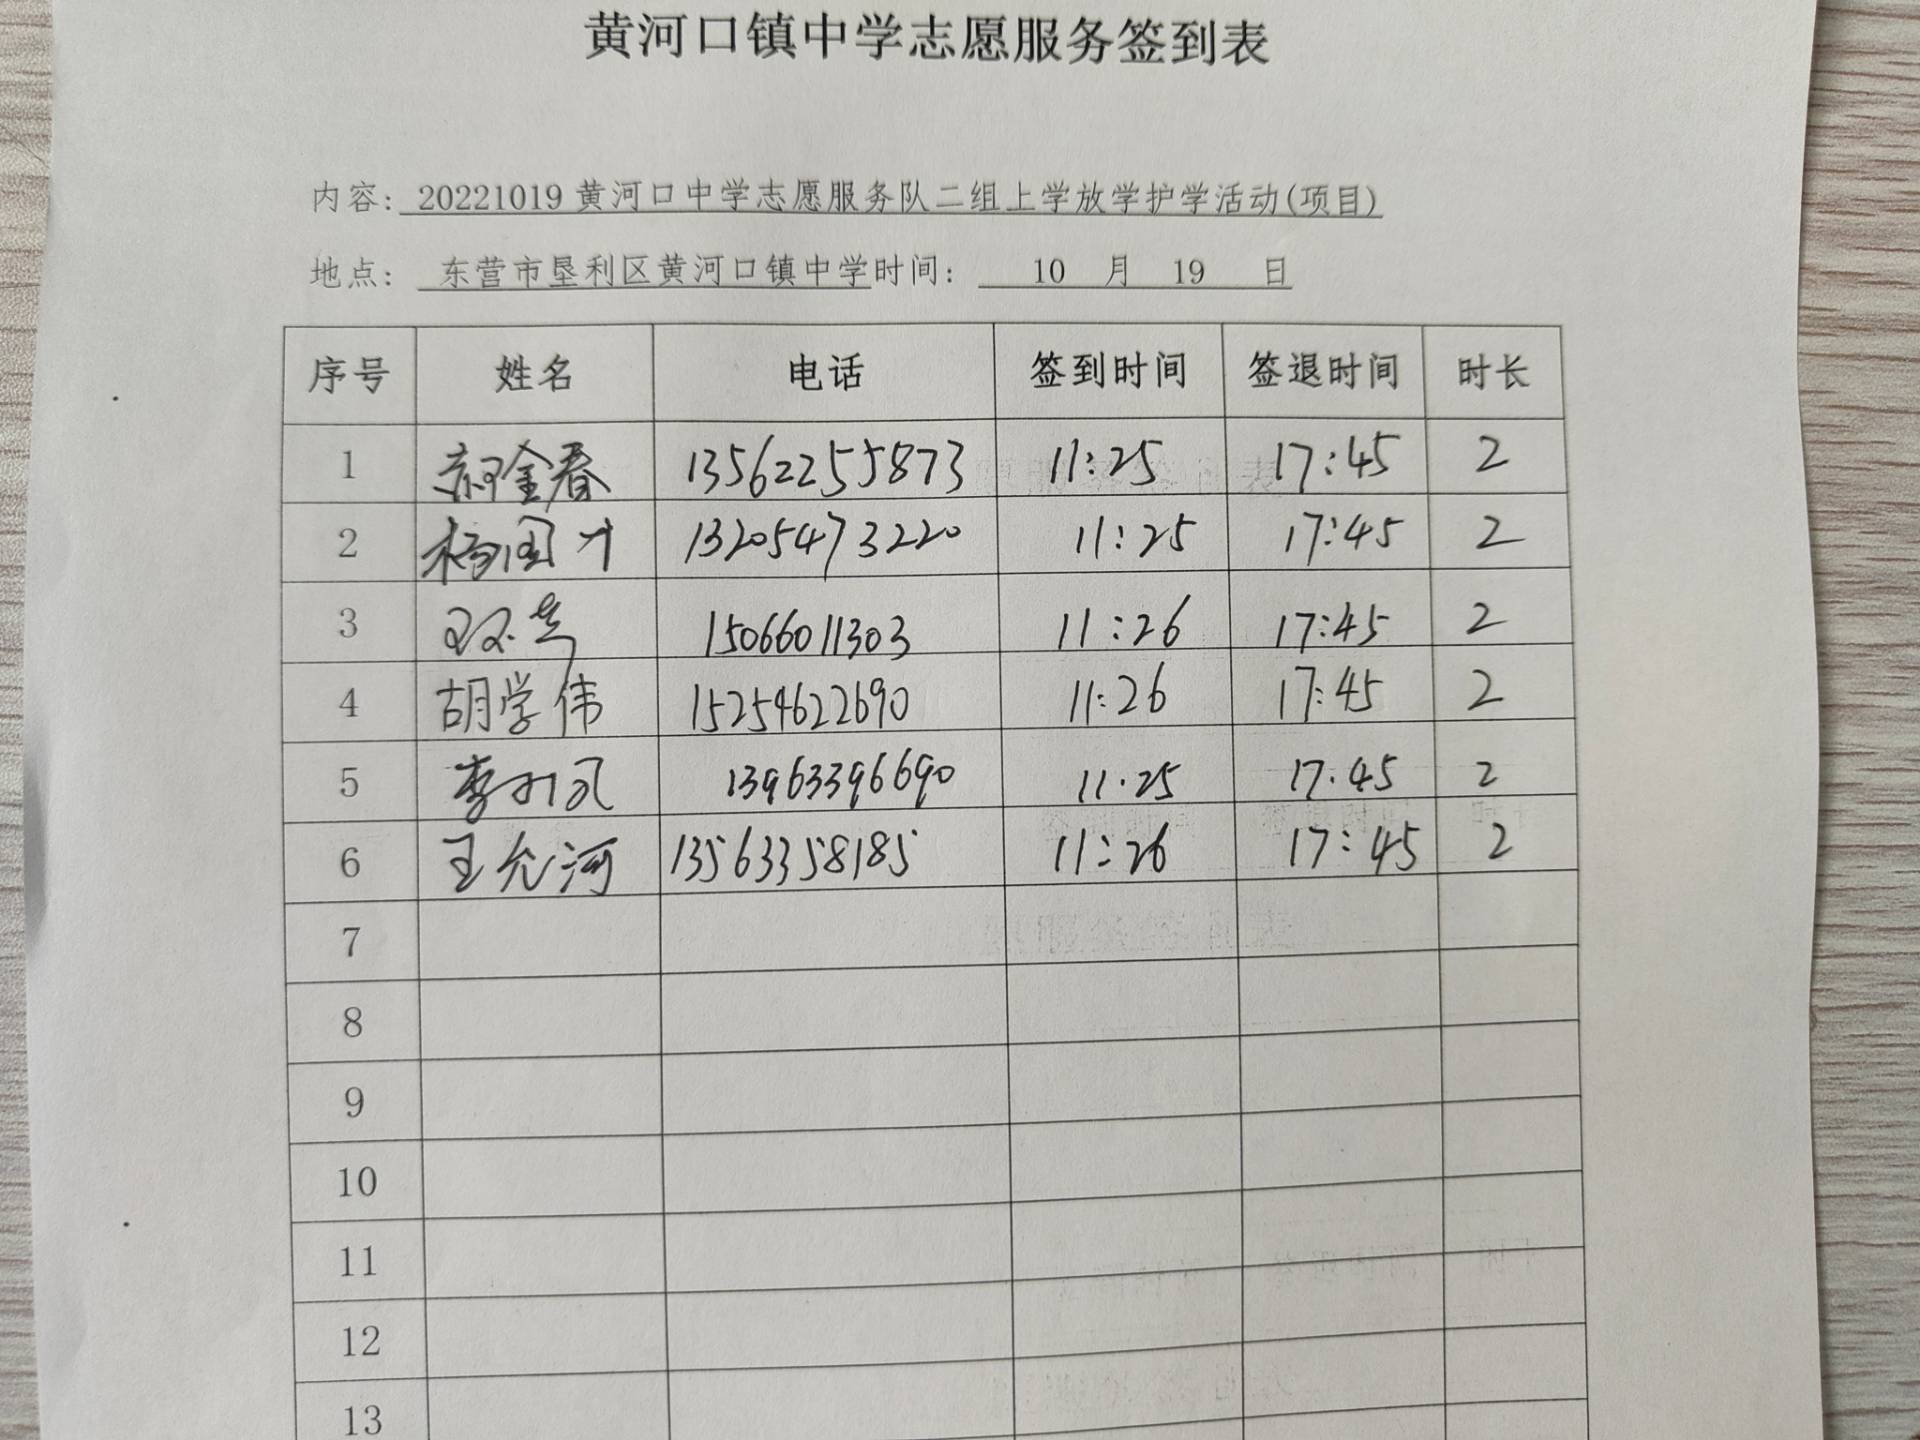 黄河口镇中学志愿服务签到表
内容: 20221019 黄河口中学志愿服务队二组上学放学护学活动(项目)
地点: 东营市垦利区黄河口镇中学时间: 10 月 19 日
序号 姓名 电话 签到时间 签退时间 时长
1 金春 13562255873 11:25 17:45 2
2 13205473220 11:25 17:45 2
3 15066011303 11:26 17:45 2
4 胡学伟 15254622690 11:26 17:45 2
5 李 13963396690 11:25 17:45 2
6 王允河 13563358185 11:26 17:45 2
7
8
9
10
11
12
13